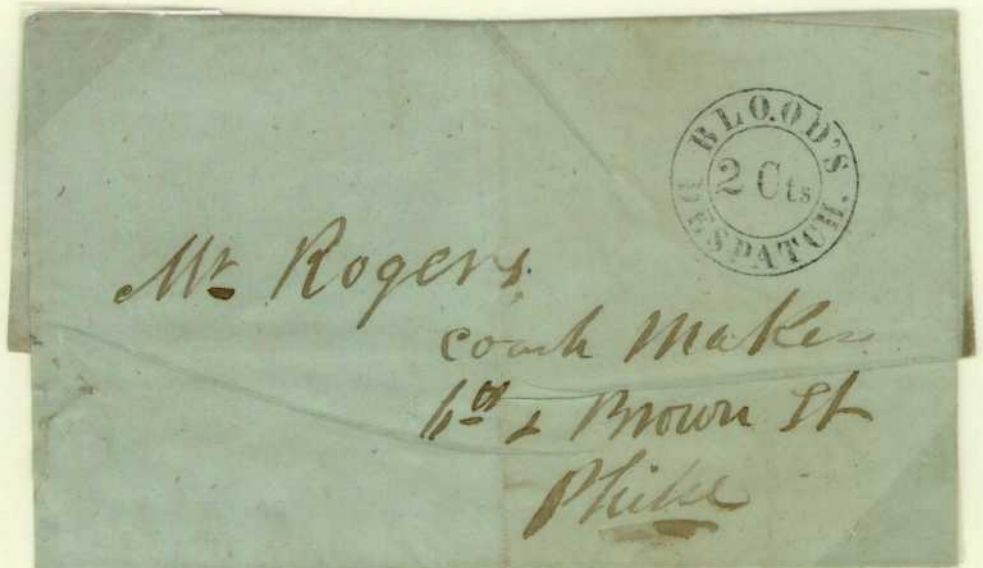 BLOOD'S
2 Cts
DESPATCH.
Mr Rogers
coach Maker
6th & Brown St
Phila